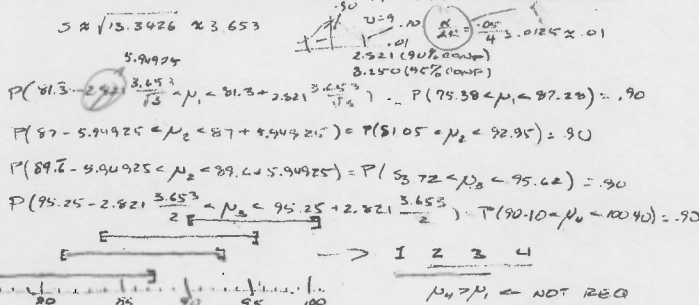 S ≈ √13.3426 ≈ 3.653
.90
ν=9 .10
.01
α/2k = .05/4 = .0125 ≈ .01
2.821 (90% CONF)
3.250 (95% CONF)
5.94925
P(81.3̄ - 2.821 3.653/√3 < μ₁ < 81.3 + 2.821 3.653/√3) P(75.38 < μ₁ < 87.28) = .90
P(87 - 5.94925 < μ₂ < 87 + 5.94925) = P(81.05 < μ₂ < 92.95) = .90
P(89.6̄ - 5.94925 < μ₂ < 89.6 + 5.94925) = P(83.72 < μ₃ < 95.62) = .90
P(95.25 - 2.821 3.653/2 < μ₃ < 95.25 + 2.821 3.653/2) P(90.10 < μ₄ < 100.40) = .90
→ 1 2 3 4
80 85 90 95 100
μ₄ > μ₁ ← NOT REQ